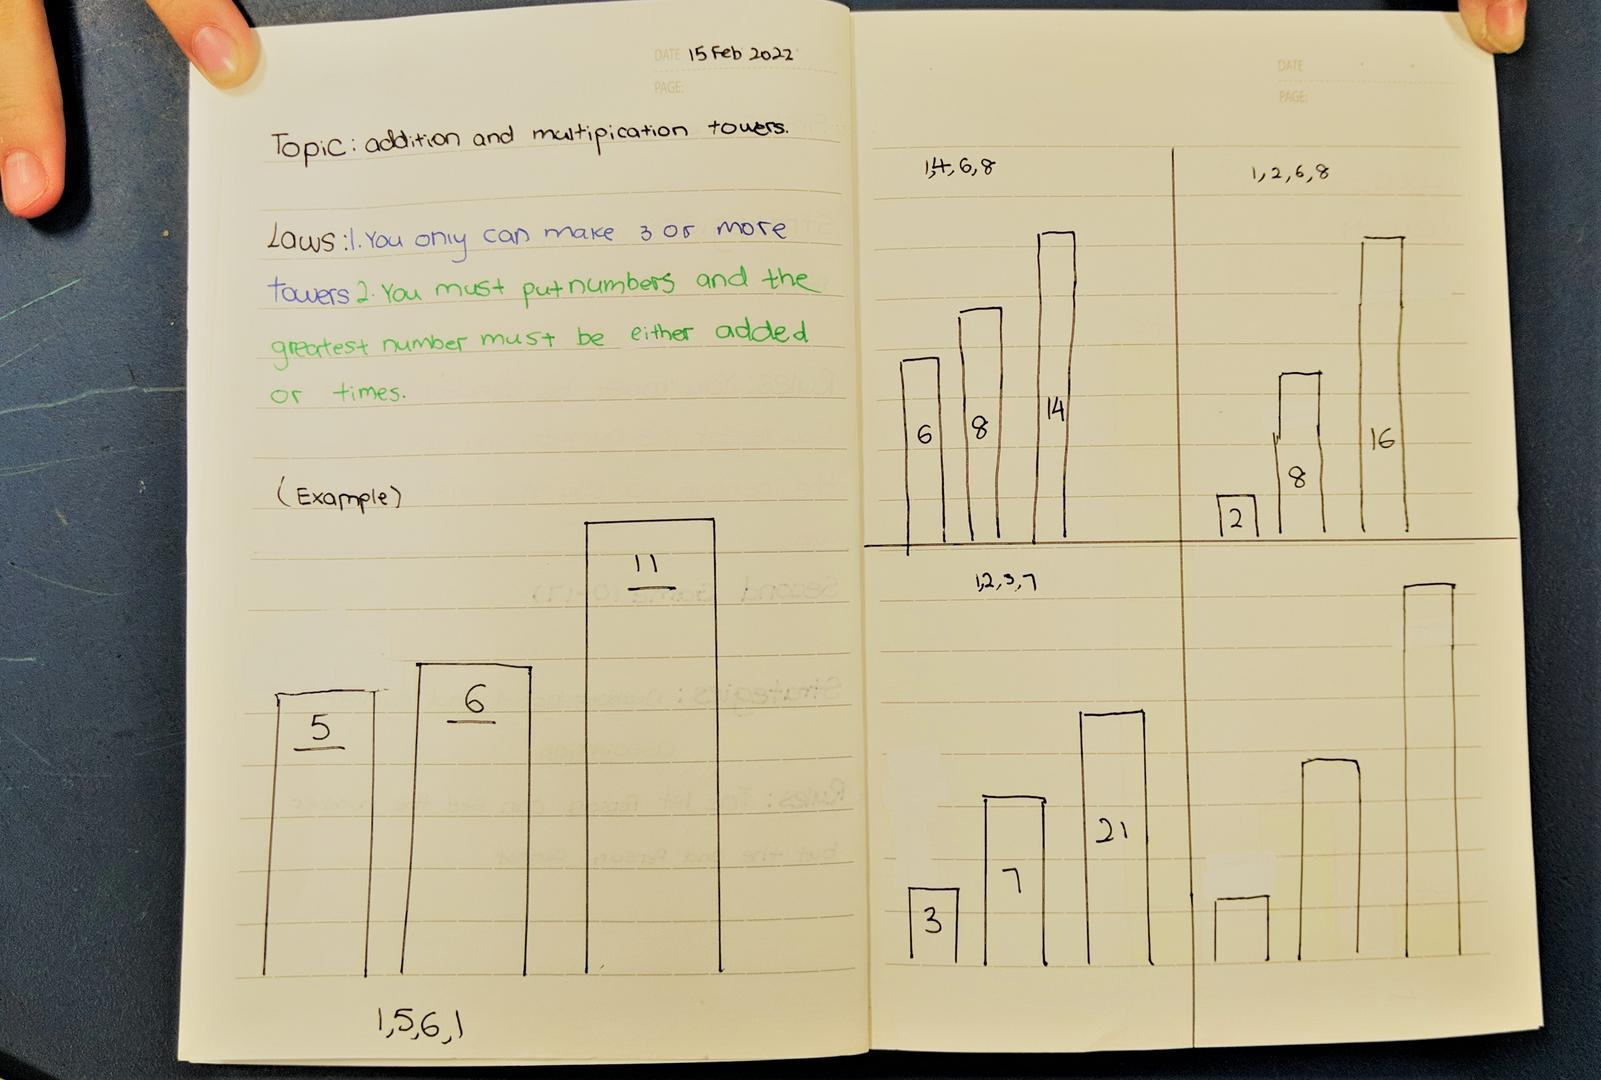 DATE 15 Feb 2022
PAGE:
Topic: addition and multipication towers.
Laws: 1. You only can make 3 or more
towers 2. You must put numbers and the
greatest number must be either added
or times.
(Example)
5
6
11
1,5,6,1
DATE
PAGE:
1,4,6,8
6
8
14
1,2,6,8
2
8
16
1,2,3,7
3
7
21